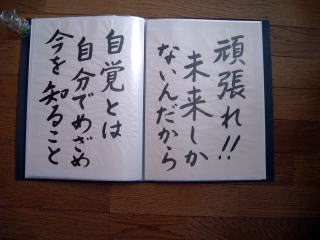 頑張れ!!
未来しか
ないんだから
自覚とは
自分でめざめ
今を知ること